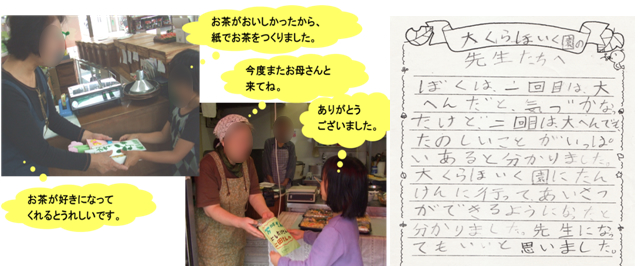 お茶がおいしかったから、
紙でお茶をつくりました。
今度またお母さんと
来てね。
ありがとう
ございました。
お茶が好きになって
くれるとうれしいです。
大くらほいく園の
先生たちへ
ぼくは、一回目は、大
へんだと、気づかな
たけど、二回目は大へんでも、
たのしいことがいっぱ
いあると分かりました。
大くらほいく園にたん
けんに行って、あいさつ
ができるようになったと
分かりました。先生になっ
てもいいと思いました。